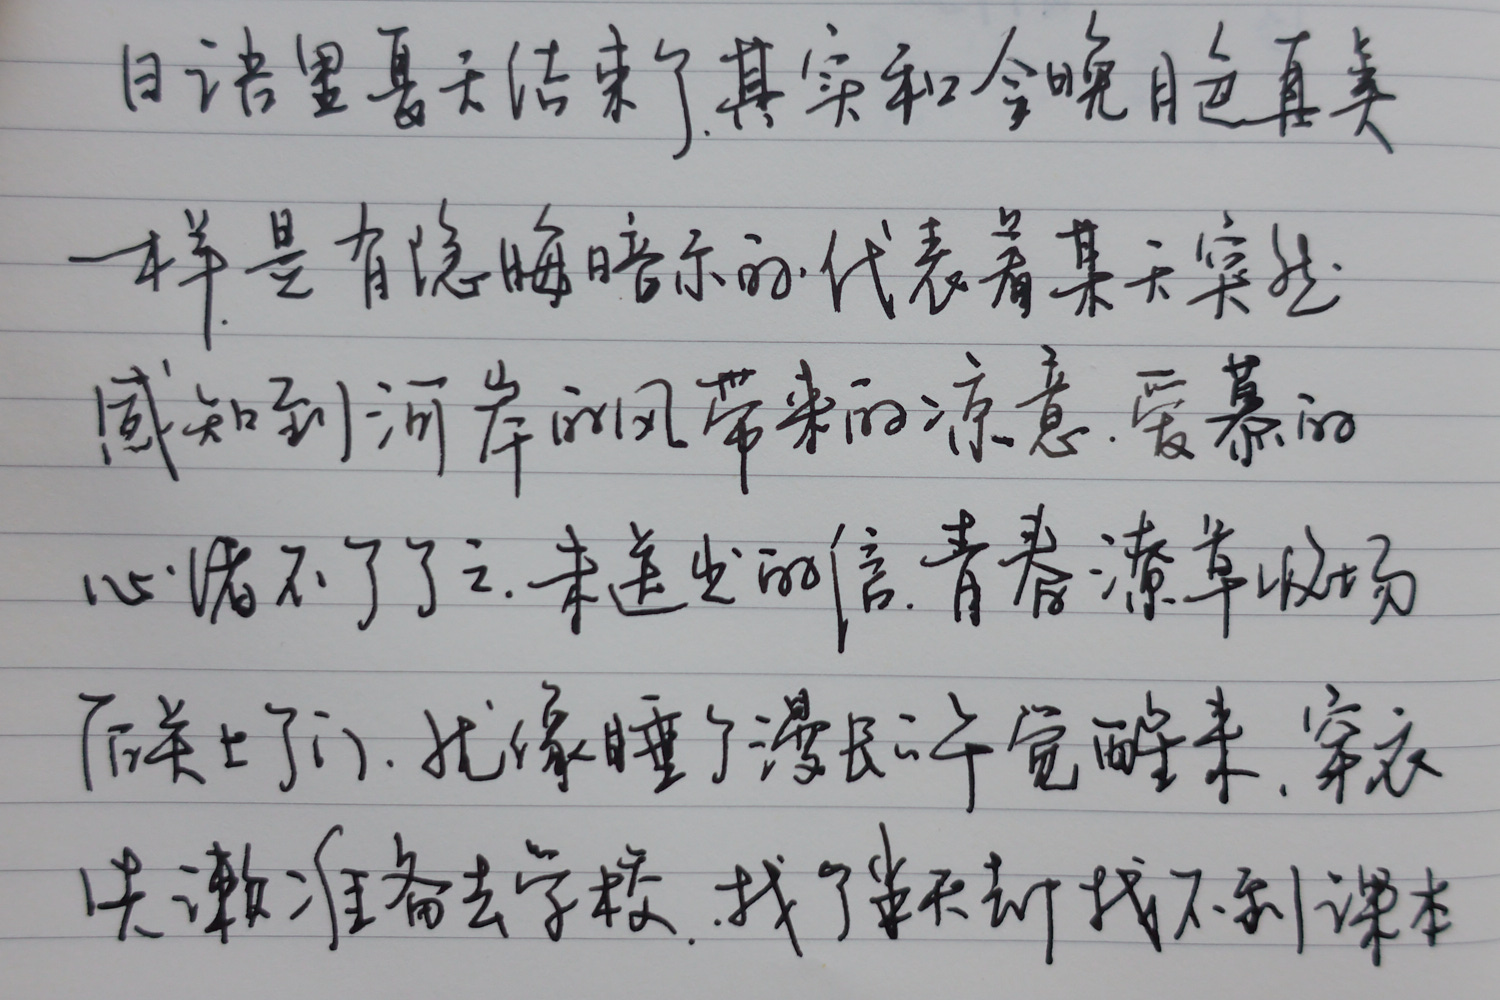 日语里夏天结束了.其实和今晚月色真美
一样.是有隐晦暗示的.代表着某天突然
感知到河岸的风带来的凉意.爱慕的
心绪不了了之.未送出的信.青春潦草收场
后关上了门.就像睡了漫长午觉醒来.穿衣
洗漱准备去学校.找了半天却找不到课本